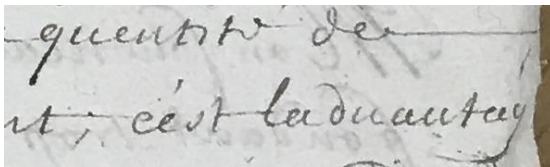 quentité de
nt, cést laduantag